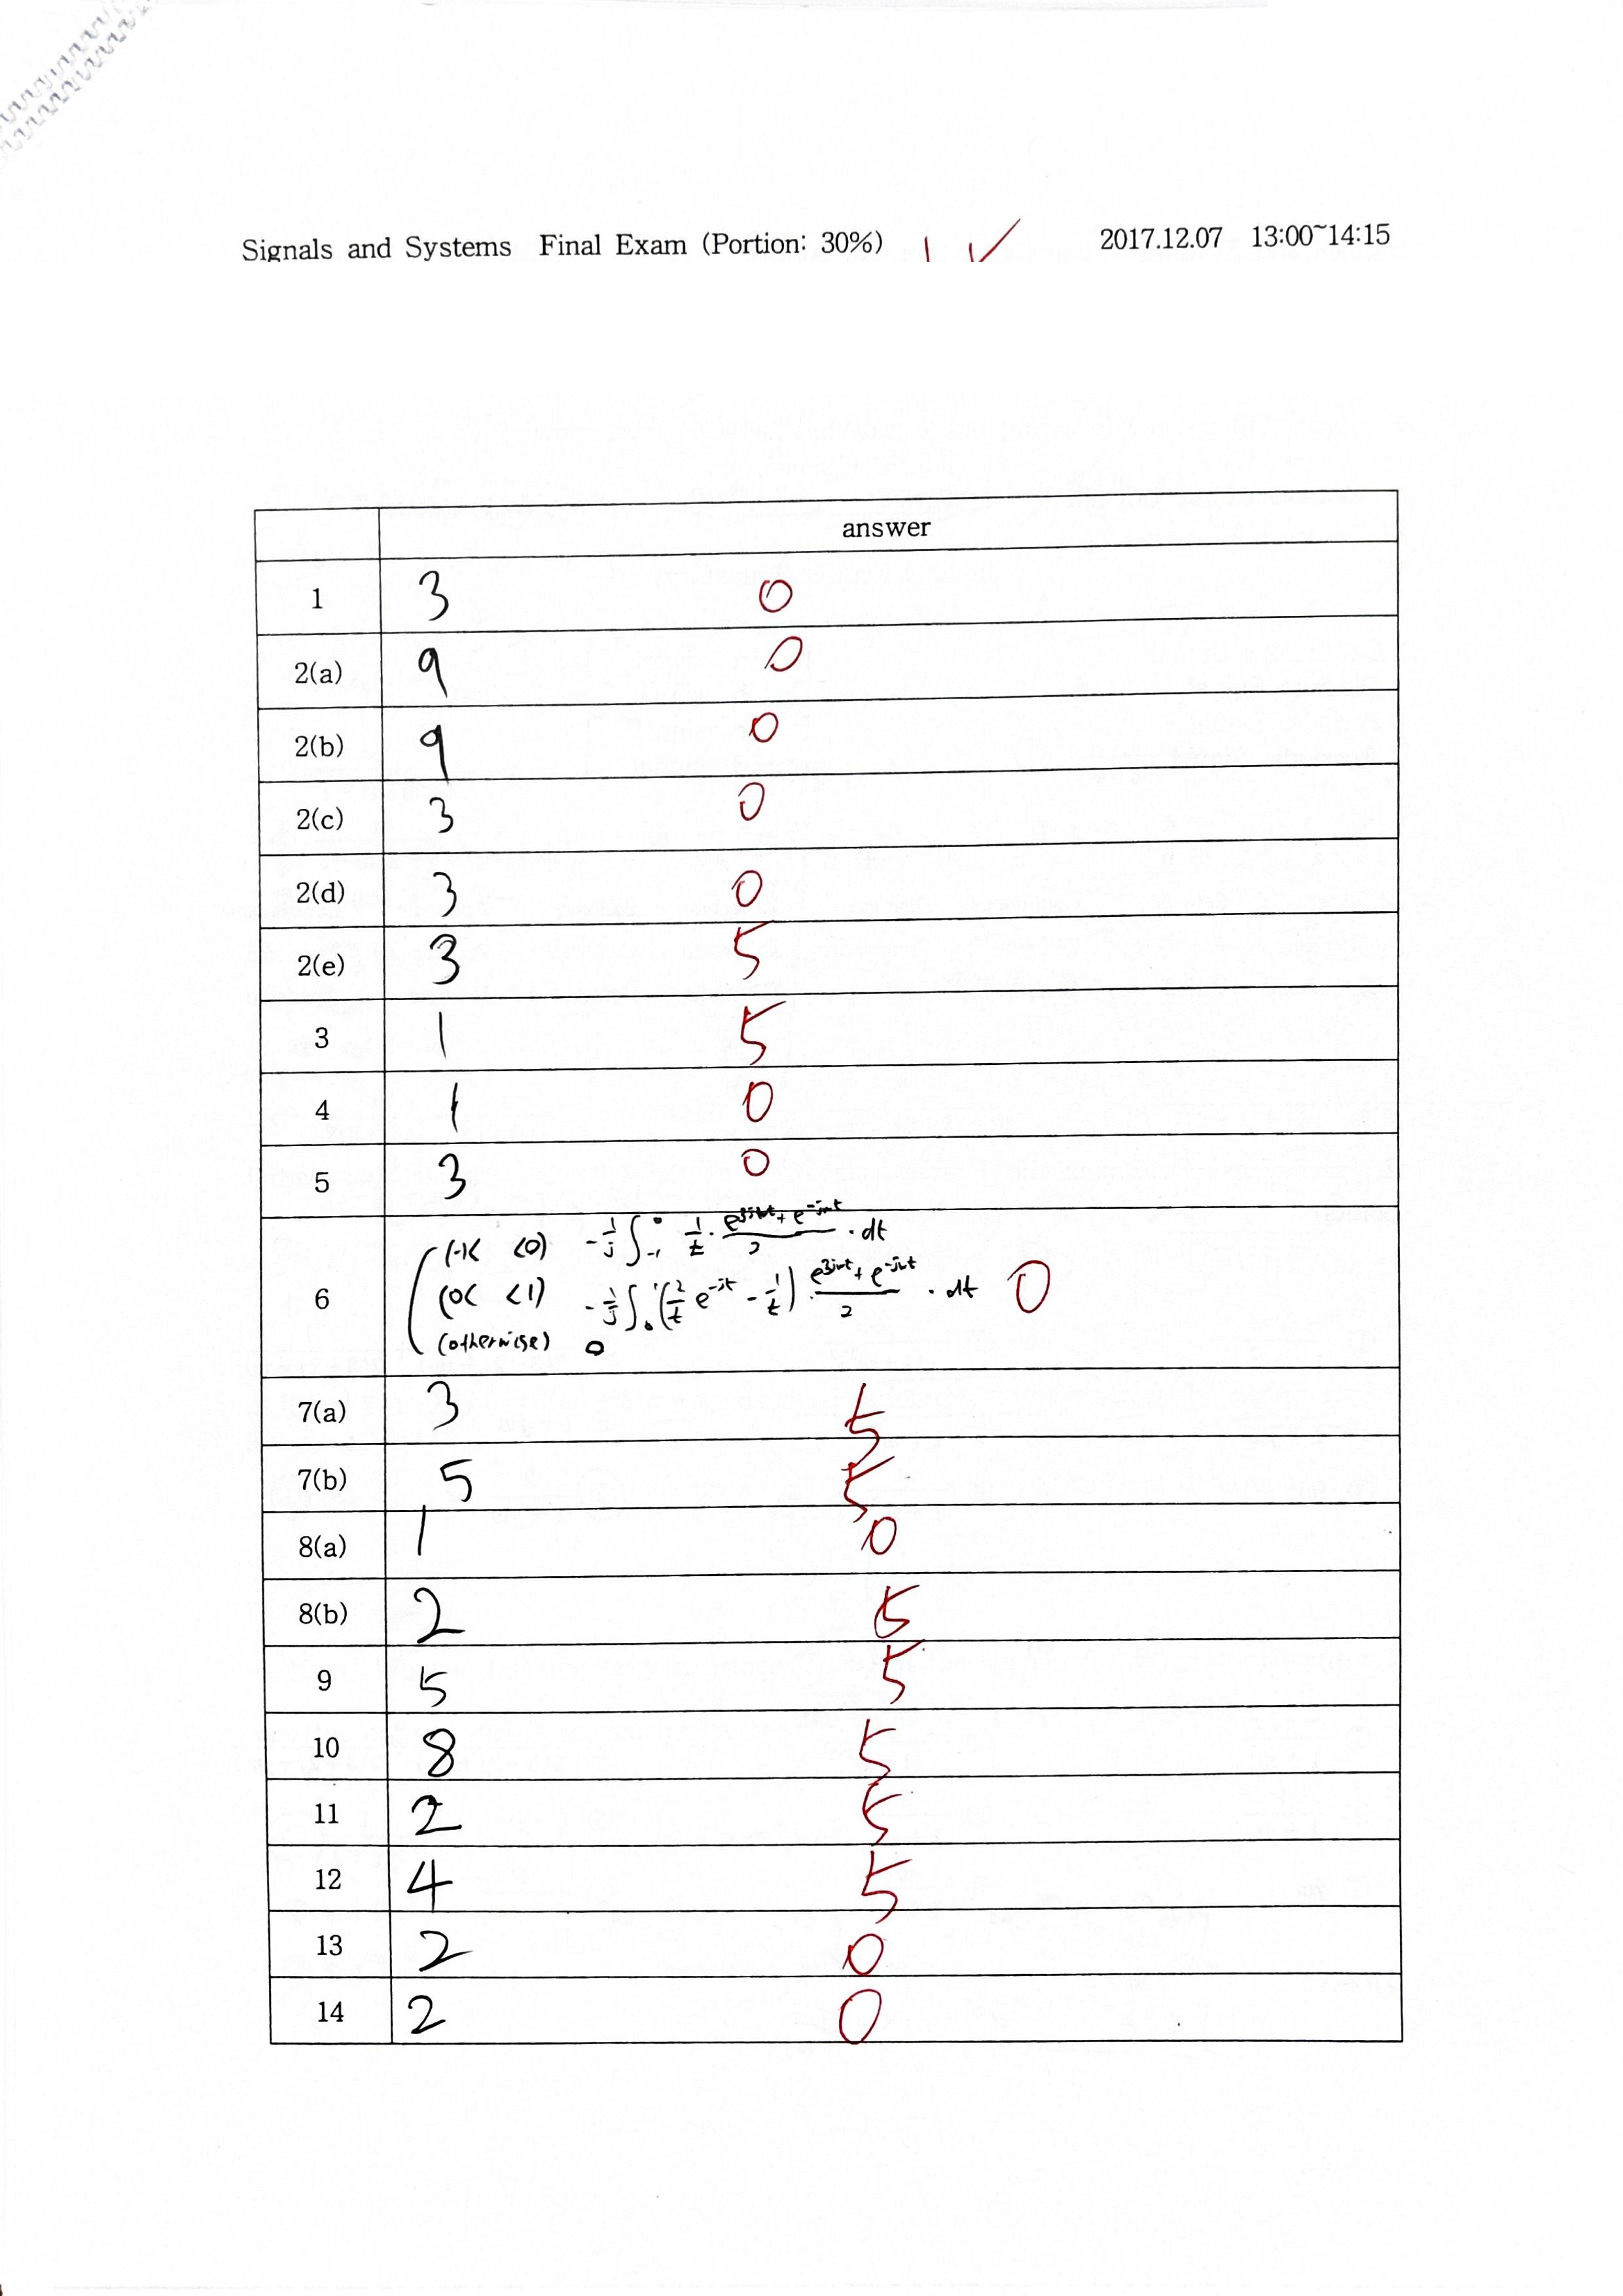 Signals and Systems Final Exam (Portion: 30%) 2017.12.07 13:00~14:15
answer
1 3 0
2(a) 9 0
2(b) 9 0
2(c) 3 0
2(d) 3 0
2(e) 3 5
3 1 5
4 1 0
5 3 0
(-1< <0) -1/j ∫_{-1}^{0} 1/t · (e^{3jωt} + e^{-jωt})/2 · dt
6 (0< <1) -1/j ∫_{0}^{1} (2/t e^{-jt} - 1/t) · (e^{3jωt} + e^{-jωt})/2 · dt 0
(otherwise) 0
7(a) 3 5
7(b) 5 5
8(a) 1 0
8(b) 2 5
9 5 5
10 8 5
11 2 5
12 4 5
13 2 0
14 2 0